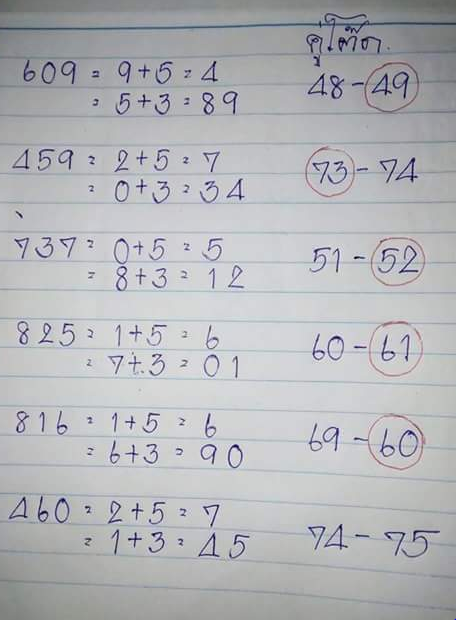 คู่โต๊ด.
609 = 9+5 = 4
= 5+3 = 89
48-49
459 = 2+5 = 7
= 0+3 = 34
73-74
737 = 0+5 = 5
= 8+3 = 12
51-52
825 = 1+5 = 6
= 7+3 = 01
60-61
816 = 1+5 = 6
= 6+3 = 90
69-60
460 = 2+5 = 7
= 1+3 = 45
74-75